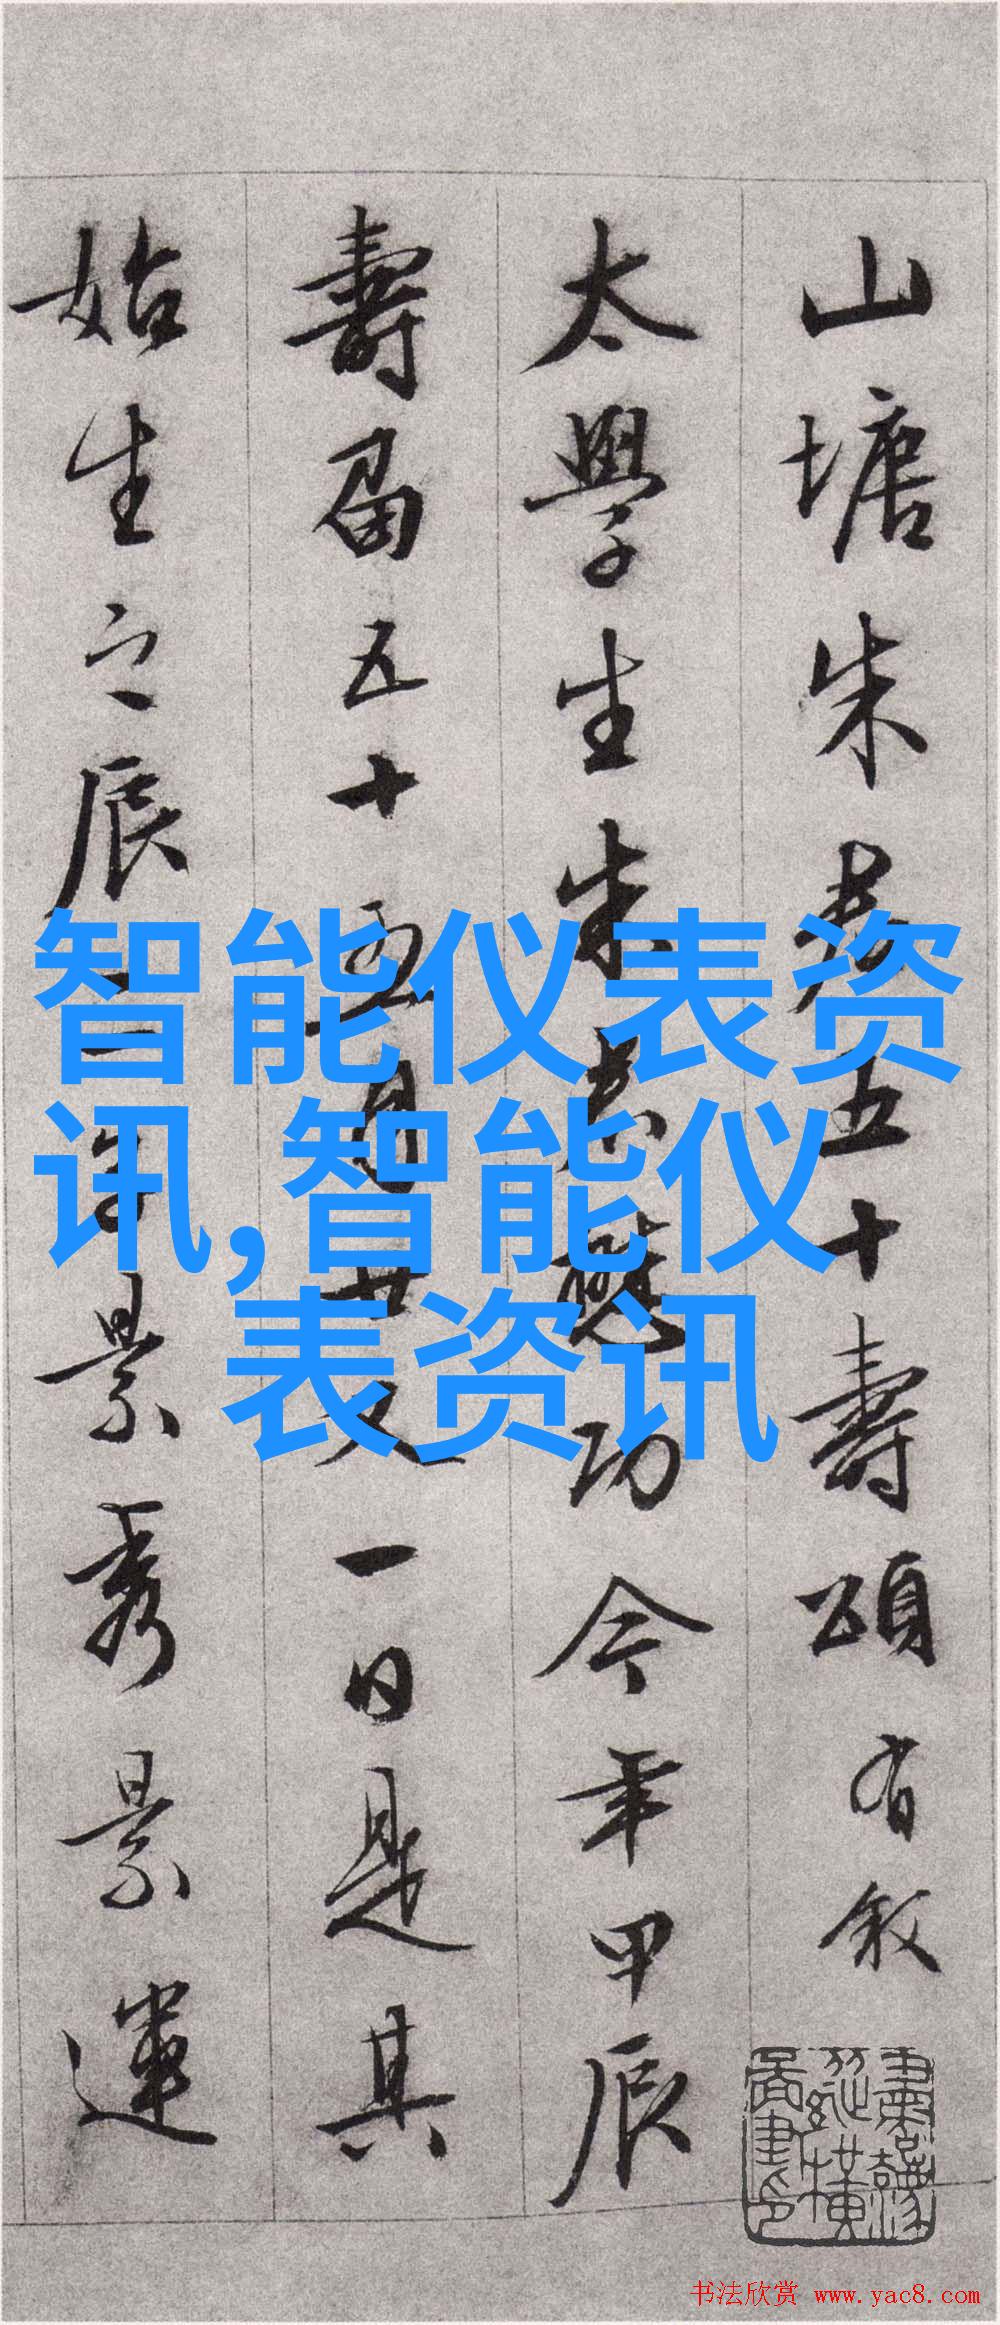 山塘朱君五十壽頌有敘
太學生朱君懋功今年甲辰
壽屆五十五月廿又一日是其
始生之辰
景秀景運
智能仪表资
讯,智能仪
表资讯
书法欣赏 www.yac8.com